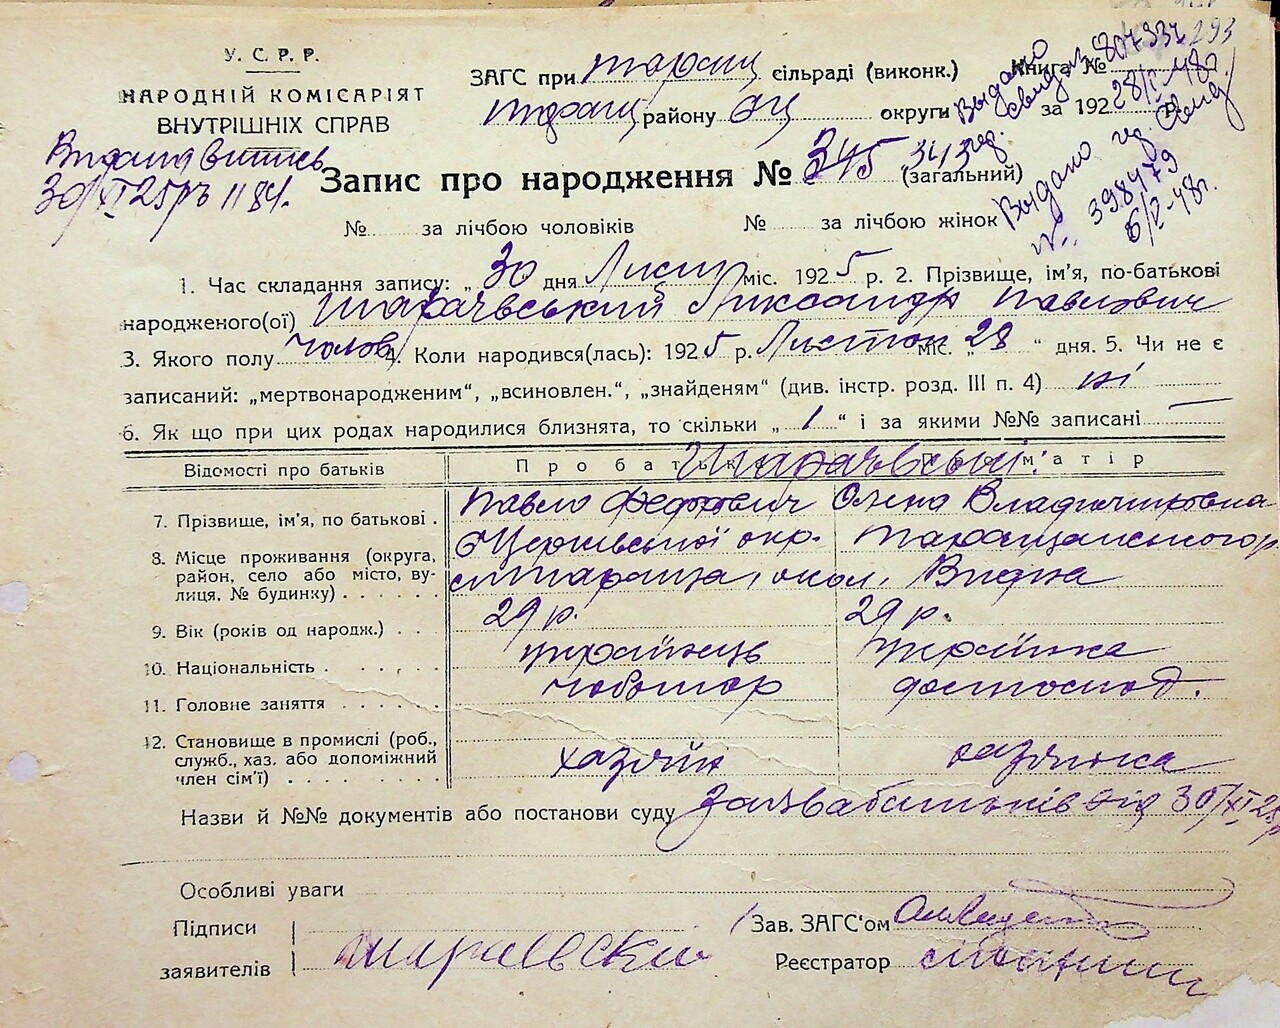 У. С. Р. Р.
НАРОДНІЙ КОМІСАРІЯТ
ВНУТРІШНІХ СПРАВ
30/XI 25 р № 1184.
ЗАГС при Таращ сільраді (виконк.) Книга №
Таращ району БЦ округи за 192 р.
Выдано 807334 28/I-48г.
Выдано 398479 6/V-48г.
293
Запис про народження № 345 343 (загальний)
№ за лічбою чоловіків № за лічбою жінок
1. Час складання запису: „30“ дня Лист міс. 1925 р. 2. Прізвище, ім'я, по-батькові
народженого(ої) Тарачвський Ликсандр Павлович
3. Якого полу Чолов 4. Коли народився(лась): 1925 р. Листоп міс. „28“ дня. 5. Чи не є
записаний: „мертвонародженим“, „всиновлен.“, „знайденям“ (див. інстр. розд. III п. 4) ні
6. Як що при цих родах народилися близнята, то скільки „1“ і за якими №№ записані —
Відомості про батьків Про батька Про матір
7. Прізвище, ім'я, по батькові . Павло Федорович Олена
8. Місце проживання (округа, район, село або місто, вулиця, № будинку) . . . . . Б Церківської окр. Таращанського р
м Тараща, окол.
9. Вік (років од народж.) . . 29 р. 29 р.
10. Національність . . . . . українець українка
11. Головне заняття . . . . . чоботар домгоспод.
12. Становище в промислі (роб., служб., хаз. або допоміжний член сім'ї) . . . . . . . хазяїн хазяйка
Назви й №№ документів або постанови суду Заява батьків від 30/XI 25р
Особливі уваги
Підписи Зав. ЗАГС'ом
заявителів Реєстратор